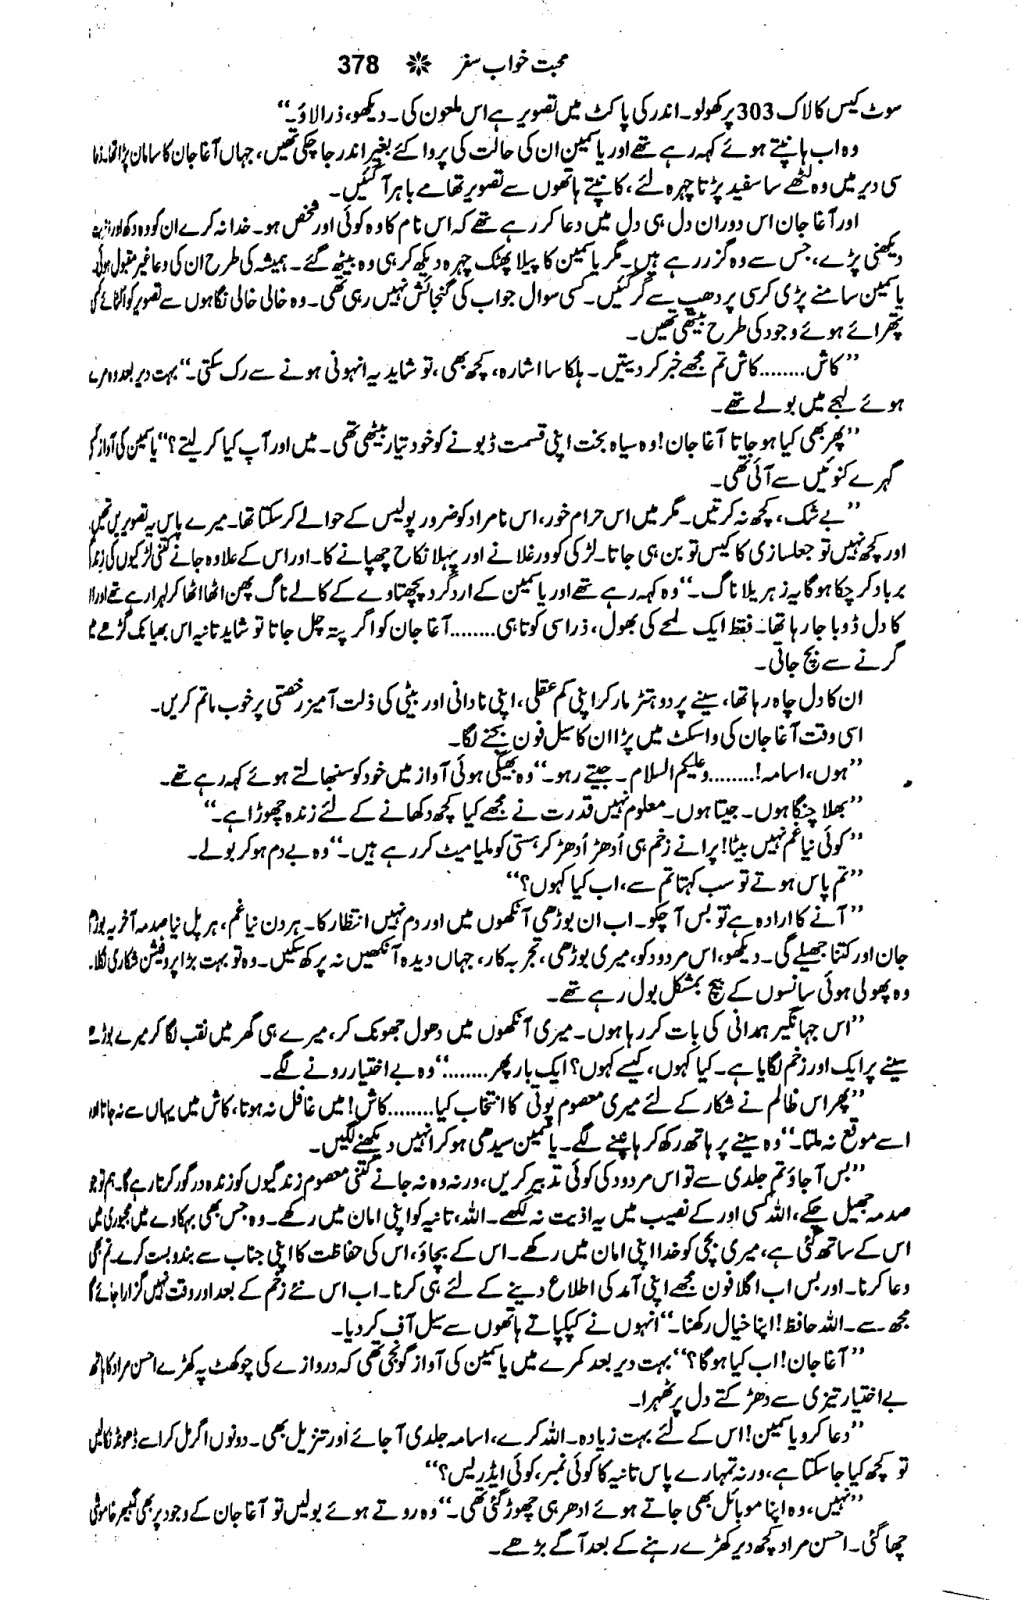 محبت خواب سفر ❋ 378
سوٹ کیس کا لاک 303 پر کھولو۔ اندر کی پاکٹ میں تصویر ہے اس ملعون کی۔ دیکھو، ذرا لاؤ۔‘‘
وہ اب ہانپتے ہوئے کہہ رہے تھے اور یاسمین ان کی حالت کی پروا کئے بغیر اندر جا چکی تھیں، جہاں آغا جان کا سامان پڑا تھا۔ ذرا
سی دیر میں وہ لٹھے سا سفید پڑتا چہرہ لئے، کانپتے ہاتھوں سے تصویر تھامے باہر آ گئیں۔
اور آغا جان اس دوران دل ہی دل میں دعا کر رہے تھے کہ اس نام کا وہ کوئی اور شخص ہو۔ خدا نہ کرے ان کو وہ دکھ اور اذیت
دیکھنی پڑے، جس سے وہ گزر رہے ہیں۔ مگر یاسمین کا پیلا پھٹک چہرہ دیکھ کر ہی وہ بیٹھ گئے۔ ہمیشہ کی طرح ان کی دعا غیر مقبول ہوئی۔
یاسمین سامنے پڑی کرسی پر دھپ سے گر گئیں۔ کسی سوال جواب کی گنجائش نہیں رہی تھی۔ وہ خالی خالی نگاہوں سے تصویر کو
پتھرائے ہوئے وجود کی طرح بیٹھی تھیں۔
’’کاش........کاش تم مجھے خبر کر دیتیں۔ ہلکا سا اشارہ، کچھ بھی، تو شاید یہ انہونی ہونے سے رک سکتی۔‘‘ بہت دیر بعد وہ مرے
ہوئے لہجے میں بولے تھے۔
’’پھر بھی کیا ہو جاتا آغا جان! وہ سیاہ بخت اپنی قسمت ڈبونے کو خود تیار بیٹھی تھی۔ میں اور آپ کیا کر لیتے؟‘‘ یاسمین کی آواز کسی
گہرے کنوئیں سے آئی تھی۔
’’بے شک، کچھ نہ کرتیں۔ مگر میں اس حرام خور، اس نامراد کو ضرور پولیس کے حوالے کر سکتا تھا۔ میرے پاس یہ تصویریں تھیں
اور کچھ نہیں تو جعلسازی کا کیس تو بن ہی جاتا۔ لڑکی کو ورغلانے اور پہلا نکاح چھپانے کا۔ اور اس کے علاوہ جانے کتنی لڑکیوں کی زندگی
برباد کر چکا ہو گا یہ زہریلا ناگ۔‘‘ وہ کہہ رہے تھے اور یاسمین کے اردگرد پچھتاوے کے کالے ناگ پھن اٹھا اٹھا کر لہرا رہے تھے اور ان
کا دل ڈوبا جا رہا تھا۔ فقط ایک لمحے کی بھول، ذرا سی کوتاہی........آغا جان کو اگر پتہ چل جاتا تو شاید تانیہ اس بھیانک گڑھے میں
گرنے سے بچ جاتی۔
ان کا دل چاہ رہا تھا، سینے پر دوہتڑ مار کر اپنی کم عقلی، اپنی نادانی اور بیٹی کی ذلت آمیز رخصتی پر خوب ماتم کریں۔
اسی وقت آغا جان کی واسکٹ میں پڑا ان کا سیل فون بجنے لگا۔
’’ہوں، اسامہ!........وعلیکم السلام۔ جیتے رہو۔‘‘ وہ بھیگی ہوئی آواز میں خود کو سنبھالتے ہوئے کہہ رہے تھے۔
’’بھلا چنگا ہوں۔ جیتا ہوں۔ معلوم نہیں قدرت نے مجھے کیا کچھ دکھانے کے لئے زندہ چھوڑا ہے۔‘‘
’’کوئی نیا غم نہیں بیٹا! پرانے زخم ہی اُدھڑ اُدھڑ کر ہستی کو ملیا میٹ کر رہے ہیں۔‘‘ وہ بے دم ہو کر بولے۔
’’تم پاس ہوتے تو سب کہتا تم سے، اب کیا کہوں؟‘‘
’’آنے کا ارادہ ہے تو بس آ چکو۔ اب ان بوڑھی آنکھوں میں اور دم نہیں انتظار کا۔ ہر دن نیا غم، ہر پل نیا صدمہ آخر یہ بوڑھی
جان اور کتنا جھیلے گی۔ دیکھو، اس مردود کو، میری بوڑھی، تجربہ کار، جہاں دیدہ آنکھیں نہ پرکھ سکیں۔ وہ تو بہت بڑا پروفیشن شکاری نکلا۔‘‘
وہ پھولی ہوئی سانسوں کے بیچ بمشکل بول رہے تھے۔
’’اس جہانگیر ہمدانی کی بات کر رہا ہوں۔ میری آنکھوں میں دھول جھونک کر، میرے ہی گھر میں نقب لگا کر میرے بوڑھے
سینے پر ایک اور زخم لگایا ہے۔ کیا کہوں، کیسے کہوں؟ ایک بار پھر........‘‘ وہ بے اختیار رونے لگے۔
’’پھر اس ظالم نے شکار کے لئے میری معصوم پوتی کا انتخاب کیا........کاش! میں غافل نہ ہوتا، کاش میں یہاں سے نہ جاتا اور
اسے موقع نہ ملتا۔‘‘ وہ سینے پر ہاتھ رکھ کر ہانپنے لگے۔ یاسمین سیدھی ہو کر انہیں دیکھنے لگیں۔
’’بس آ جاؤ تم جلدی سے تو اس مردود کی کوئی تدبیر کریں، ورنہ وہ نہ جانے کتنی معصوم زندگیوں کو زندہ درگور کرتا رہے گا۔ ہم تو جو
صدمہ جھیل چکے، اللہ کسی اور کے نصیب میں یہ اذیت نہ لکھے۔ اللہ، تانیہ کو اپنی امان میں رکھے۔ وہ جس بھی بہکاوے میں مجبوری میں
اس کے ساتھ گئی ہے، میری بچی کو خدا اپنی امان میں رکھے۔ اس کے بچاؤ، اس کی حفاظت کا اپنی جناب سے بندوبست کرے۔ تم بھی
دعا کرنا۔ اور بس اب اگلا فون مجھے اپنی آمد کی اطلاع دینے کے لئے ہی کرنا۔ اب اس نئے زخم کے بعد اور وقت نہیں گزارا جائے گا
مجھ سے۔ اللہ حافظ! اپنا خیال رکھنا۔‘‘ انہوں نے کپکپاتے ہاتھوں سے سیل آف کر دیا۔
’’آغا جان! اب کیا ہو گا؟‘‘ بہت دیر بعد کمرے میں یاسمین کی آواز گونجی تھی کہ دروازے کی چوکھٹ پہ کھڑے احسن مراد کا ہاتھ
بے اختیار تیزی سے دھڑکتے دل پر ٹھہرا۔
’’دعا کرو یاسمین! اس کے لئے بہت زیادہ۔ اللہ کرے، اسامہ جلدی آ جائے اور تنزیل بھی۔ دونوں اگر مل کر اسے ڈھونڈ نکالیں
تو کچھ کیا جا سکتا ہے، ورنہ تمہارے پاس تانیہ کا کوئی نمبر، کوئی ایڈریس؟‘‘
’’نہیں، وہ اپنا موبائل بھی جاتے ہوئے ادھر ہی چھوڑ گئی تھی۔‘‘ وہ روتے ہوئے بولیں تو آغا جان کے وجود پر بھی گمبھیر خاموشی
چھا گئی۔ احسن مراد کچھ دیر کھڑے رہنے کے بعد آگے بڑھے۔